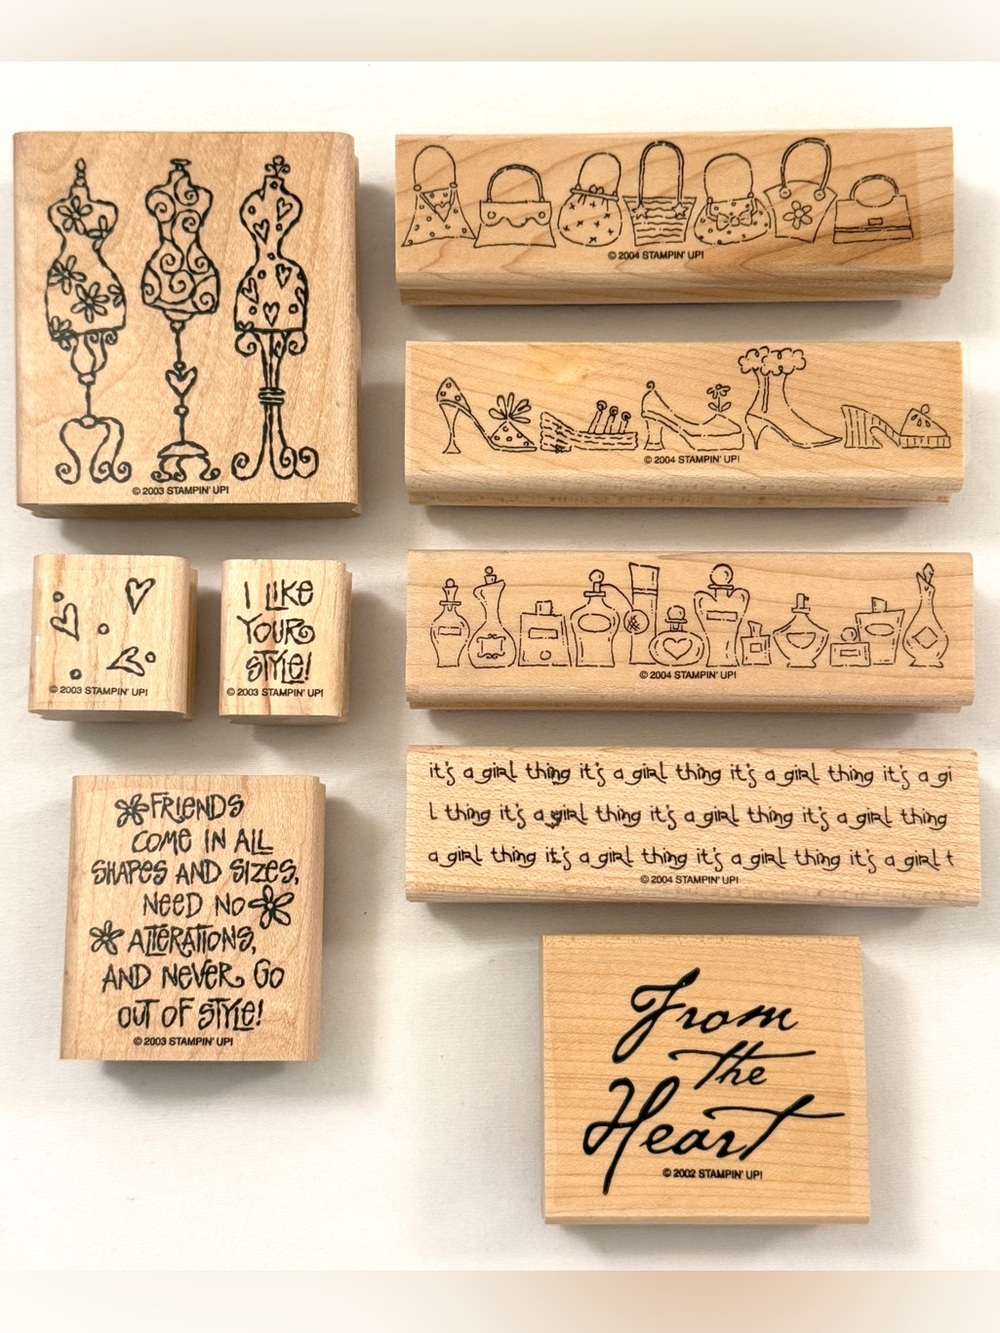 © 2003 STAMPIN' UP!
© 2004 STAMPIN' UP!
© 2004 STAMPIN' UP!
© 2003 STAMPIN' UP!
I LIKE
YOUR
STYLE!
© 2003 STAMPIN' UP!
© 2004 STAMPIN' UP!
it's a girl thing it's a girl thing it's a girl thing it's a gi
l thing it's a girl thing it's a girl thing it's a girl thing
a girl thing it's a girl thing it's a girl thing it's a girl t
© 2004 STAMPIN' UP!
FRIENDS
COME IN ALL
SHAPES AND SIZES,
NEED NO
ALTERATIONS,
AND NEVER GO
OUT OF STYLE!
© 2003 STAMPIN' UP!
From
the
Heart
© 2002 STAMPIN' UP!